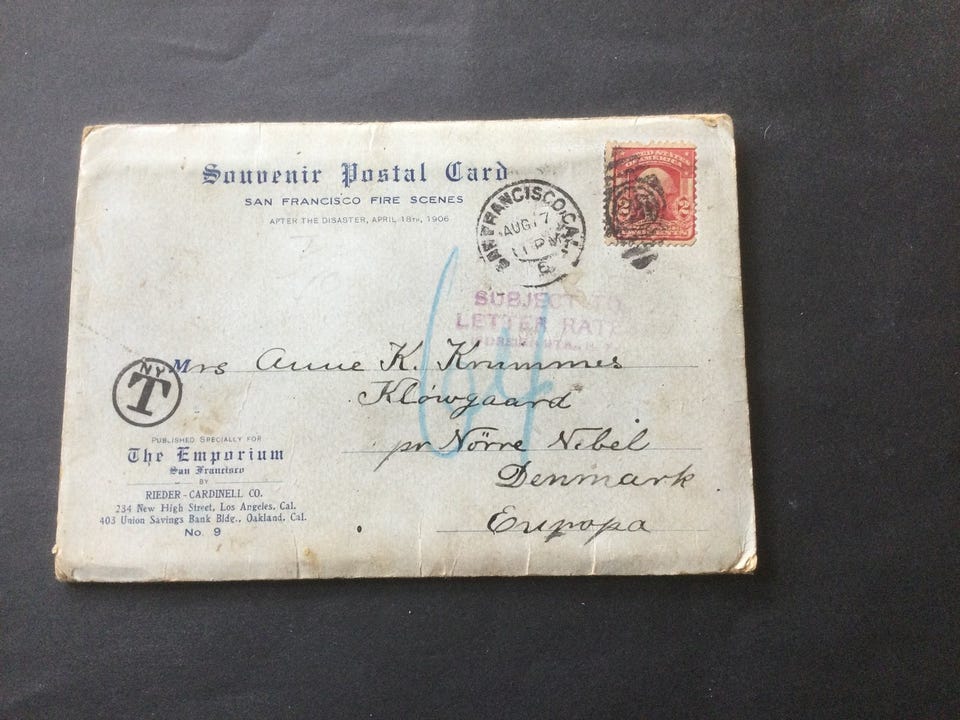 Souvenir Postal Card
SAN FRANCISCO FIRE SCENES
AFTER THE DISASTER, APRIL 18TH, 1906
SAN FRANCISCO, CAL.
AUG 17
11 PM
6
UNITED STATES
OF AMERICA
2 2
TWO CENTS
SUBJECT TO
LETTER RATE
64
N.Y.
T
Mrs Anne K. Krummes
Klówgaard
pr Nörre Nebel
Denmark
Europa
PUBLISHED SPECIALLY FOR
The Emporium
San Francisco
BY
RIEDER-CARDINELL CO.
234 New High Street, Los Angeles, Cal.
403 Union Savings Bank Bldg., Oakland, Cal.
No. 9